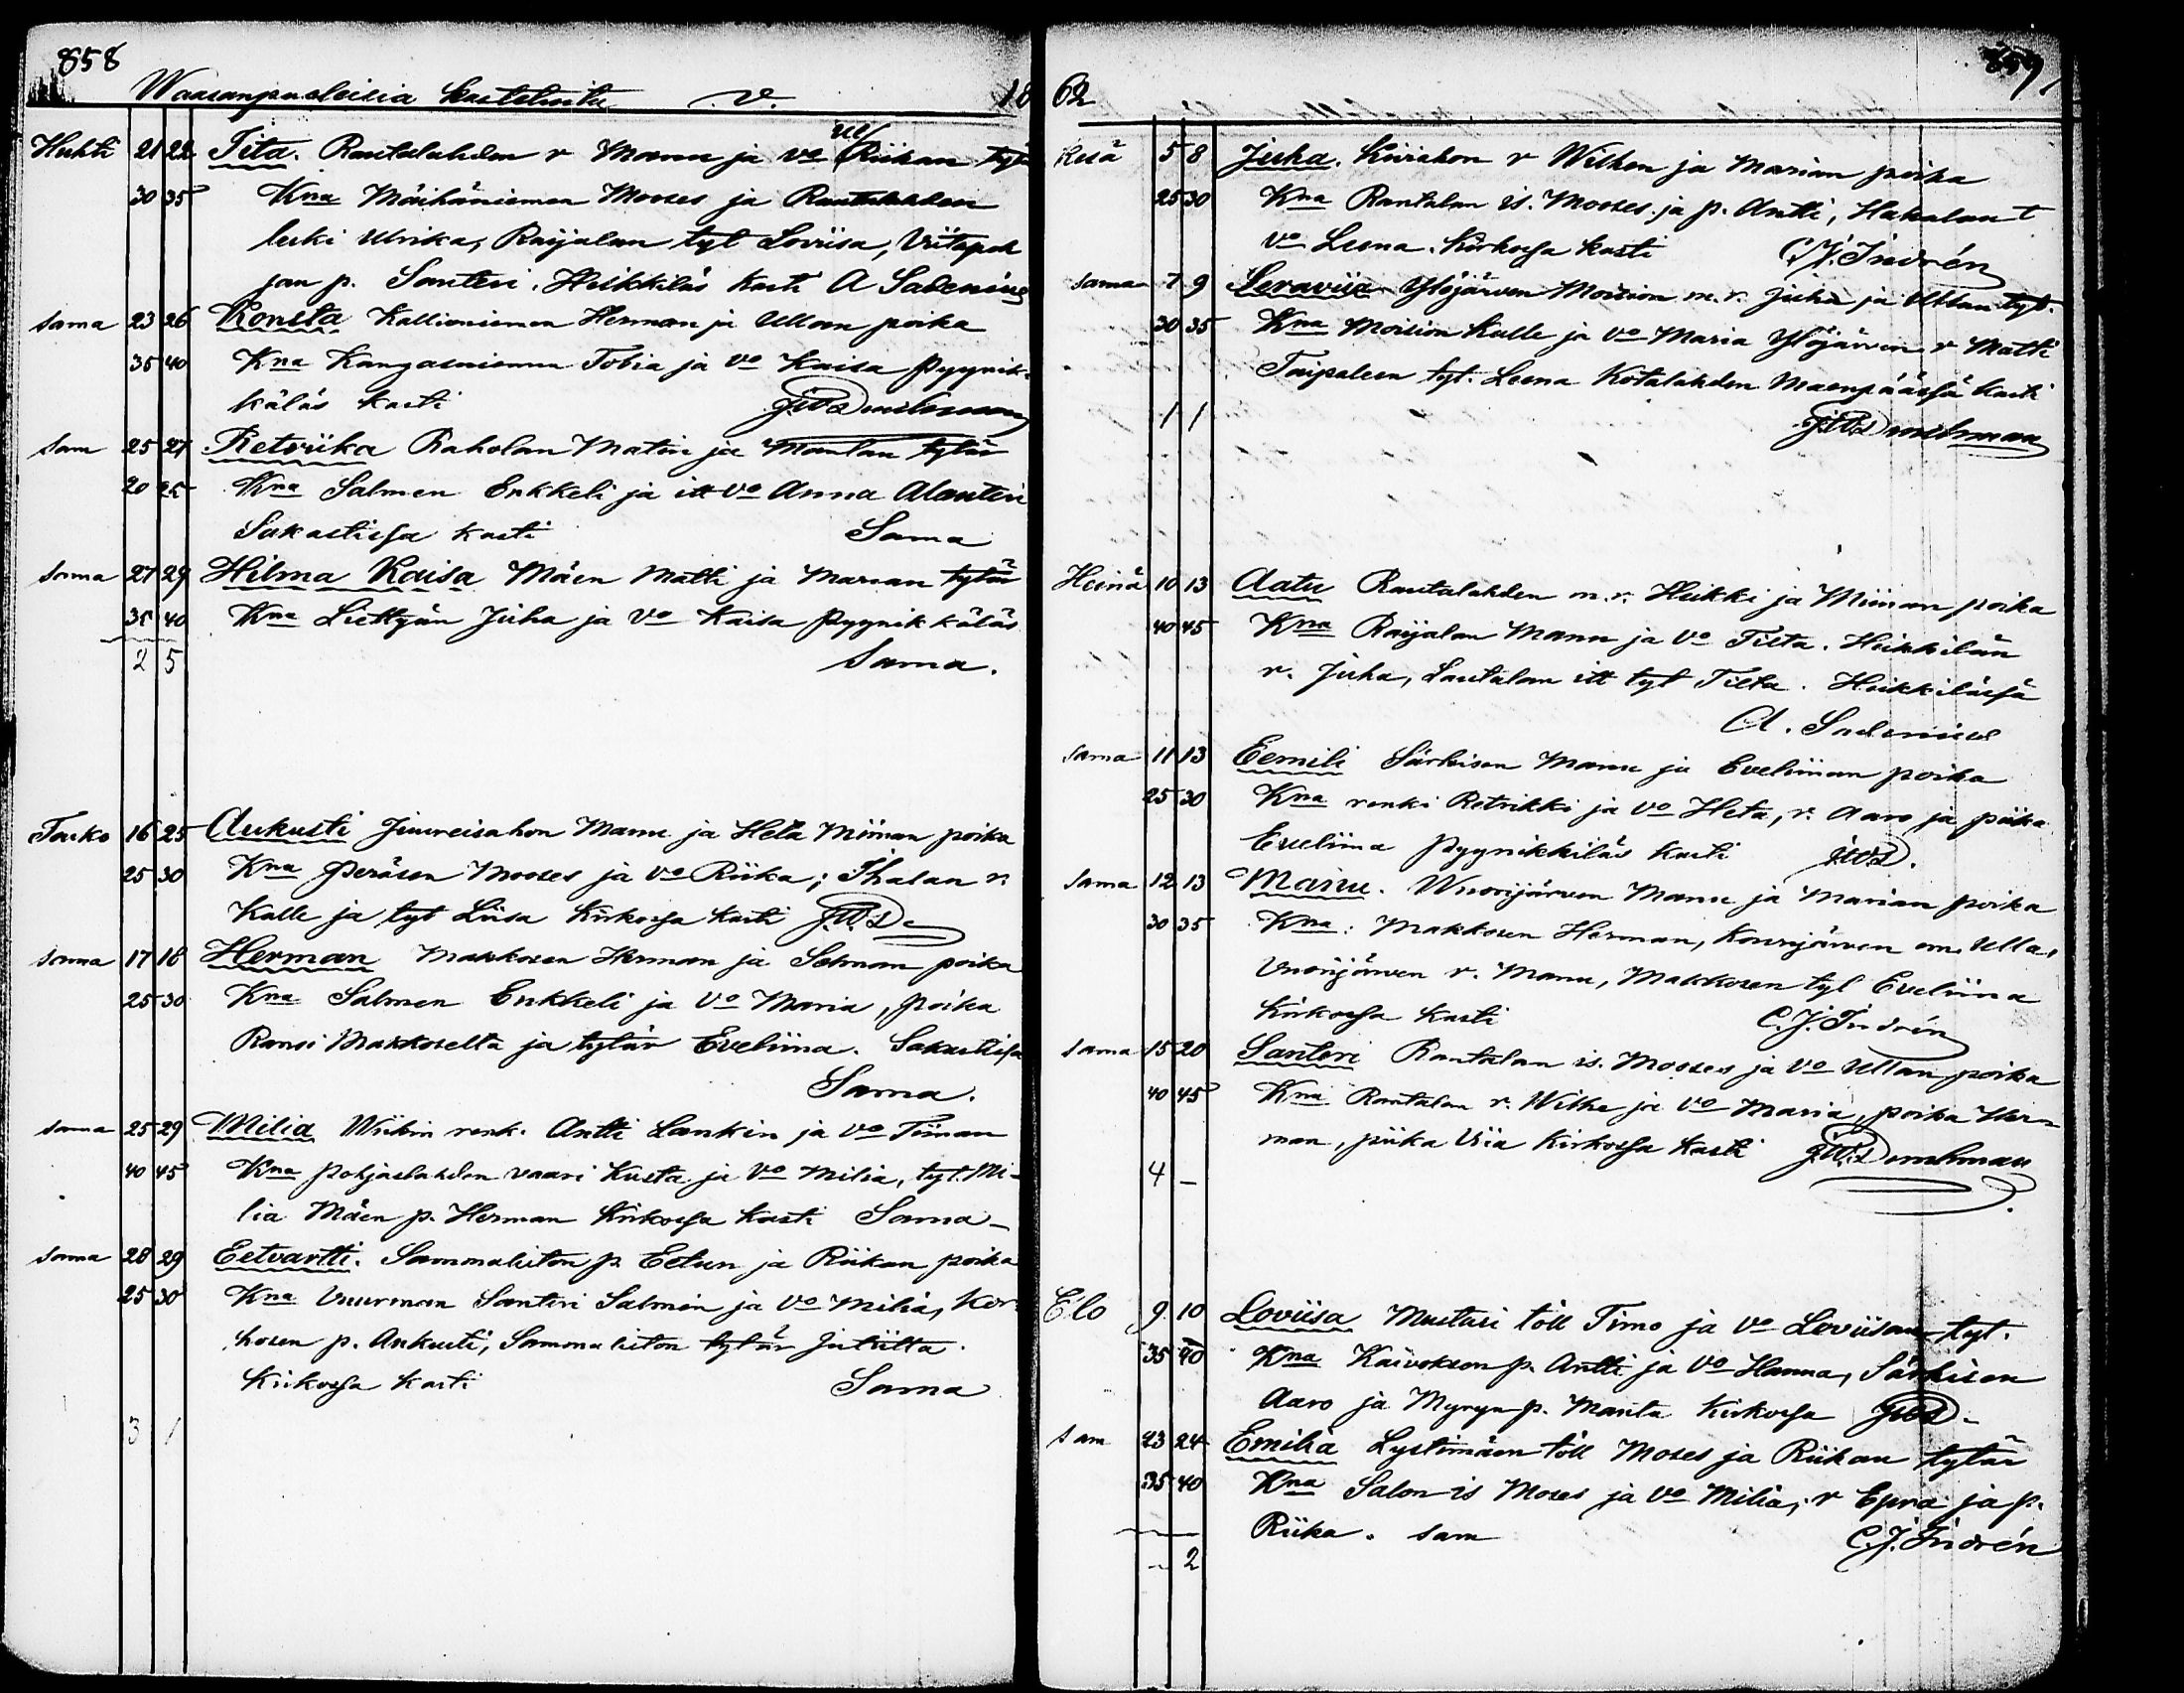 858
Waasanpuoleisia kastetuita V. 18
Huhti 21 22 Tita. Rautalahden r Manu ja vo Riikan tytär
Ul
30 35 Kna Mäihäniemen Mooses ja Rautalahden
leski Ulrika, Raijalan tyt Loviisa, Viitapoh
jan p. Santeri. Heikkiläs kasti A Sadenius
sama 23 26 Konsta Kallioniemen Herman ja Ullan poika
35 40 Kna Kangasniemen Tobia ja vo Kaisa Pyynik-
käläs kasti J.W. Durchman
sam 25 27 Retriika Raholan Matin ja Mantan tytär
20 25 Kna Salmen Enkkeli ja itt vo Anna Alanteri
Sakastissa kasti Sama
sama 27 29 Hilma Kaisa Mäen Matti ja Marian tytär
35 40 Kna Liettyän Juha ja vo Kaisa Pyynikkäläs
2 5 Sama.
Touko 16 25 Aukusti Jiuureisahon Manu ja Heta Miinan poika
25 30 Kna Peräsen Mooses ja vo Riika; Ihalan r.
Kalle ja tyt Liisa Kirkossa kasti J.W.D
sama 17 18 Herman Makkosen Herman ja Selman poika
25 30 Kna Salmen Enkkeli ja vo Maria, poika
Ransi Makkoselta ja tytär Eveliina. Sakastissa
Sama.
sama 25 29 Milia Wiikin renk. Antti Lankin ja vo Tiinan
40 45 Kna Pohjaslahden vaari Kusta ja vo Milia, tyt. Mi-
lia Mäen p. Herman Kirkossa kasti Sama
sama 28 29 Eetvartti. Sammaliston p. Eetun ja Riikan poika
25 30 Kna Vuurman Santeri Salmén ja vo Milia, Kor-
hosen p. Aukusti, Sammaliston tytär Jutiitta.
Kirkossa kasti Sama
3 1
859
62
Kesä 5 8 Juha. Kiirahon r Wilhen ja Marian poika
25 30 Kna Rantalan is. Mooses ja p. Antti, Hakalan t
vo Leena. Kirkossa kasti C.J. Indrén
sama 7 9 Seraviia Ylöjärven Moision m.r. Juha ja Ullan tyt.
30 35 Kna Moision Kalle ja vo Maria Ylöjärven r Matti
Taipaleen tyt. Leena Kotalahden Maenpäässä kasti
1 1 J.W. Durchman
Heinä 10 13 Aatu Rautalahden m.r. Heikki ja Miinan poika
40 45 Kna Raijalan Manu ja vo Tilta. Heikkilän
r. Juha, Lautalan itt tyt Tilta. Heikkilässä
A. Sadenius
sama 11 13 Eemili Särkisen Manu ja Eveliinan poika
25 30 Kna renki Retrikki ja vo Heta, r. Aaro ja piika
Eveliina Pyynikkiläs kasti J.W.D.
sama 12 13 Manu. Wuorijärven Manu ja Marian poika
30 35 Kna: Makkosen Herman, Kourujärven em. Ulla,
Vuorijärven r. Manu, Makkosen tyt Eveliina
Kirkossa kasti C.J. Indrén
sama 15 20 Santeri Rantalan is. Mooses ja vo Ullan poika
40 45 Kna Rantalan r. Wilhe ja vo Maria, poika Her-
man, piika Viia Kirkossa kasti J.W. Durchman
4 –
Elo 9 10 Loviisa Mustasi töll Timo ja vo Loviisan tyt.
35 40 Kna Kaivoksen p. Antti ja vo Hanna, Särkisen
Aaro ja Myryn p. Manta Kirkossa J.W.D.
sam 23 24 Emilia Lystimäen töll Moses ja Riikan tytär
35 40 Kna Salon is Moses ja vo Milia, r Epra ja p.
Riika. sam C.J. Indrén
– 2